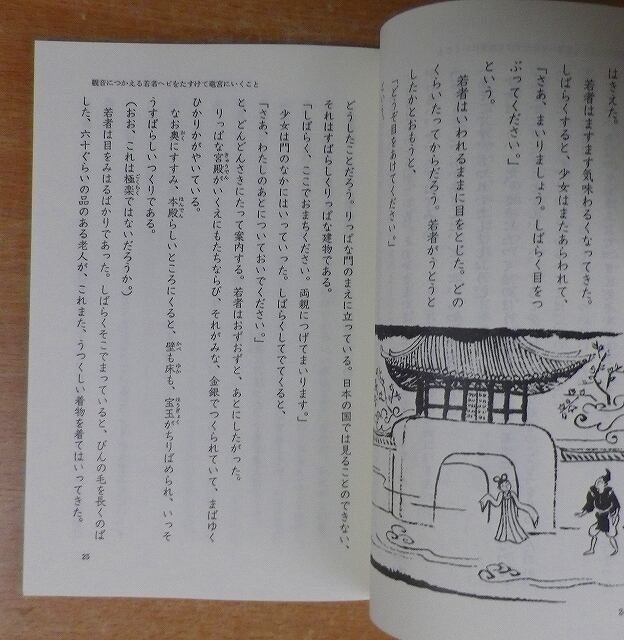 はさえた。
若者はますます気味わるくなってきた。
しばらくすると、少女はまたあらわれて、
「さあ、まいりましょう。しばらく目をつ
ぶってください。」
という。
若者はいわれるままに目をとじた。どの
くらいたってからだろう。若者がうとうと
したかとおもうと、
「どうぞ、目をあけてください。」
観音につかえる若者ヘビをたすけて竜宮にいくこと
どうしたことだろう。りっぱな門のまえに立っている。日本の国では見ることのできない、
それはすばらしくりっぱな建物である。
「しばらく、ここでおまちください。両親につげてまいります。」
少女は門のなかにはいっていった。しばらくしてでてくると、
「さあ、わたしのあとについておいでください。」
と、どんどんさきにたって案内する。若者はおずおずと、あとにしたがった。
りっぱな宮殿がいくえにもたちならび、それがみな、金銀でつくられていて、まばゆく
ひかりかがやいている。
なお奥にすすみ、本殿らしいところにくると、壁も床も、宝玉がちりばめられ、いっそ
うすばらしいつくりである。
(おお、これは極楽ではないだろうか。)
若者は目をみはるばかりであった。しばらくそこでまっていると、びんの毛を長くのば
した、六十ぐらいの品のある老人が、これまた、うつくしい着物を着てはいってきた。
25